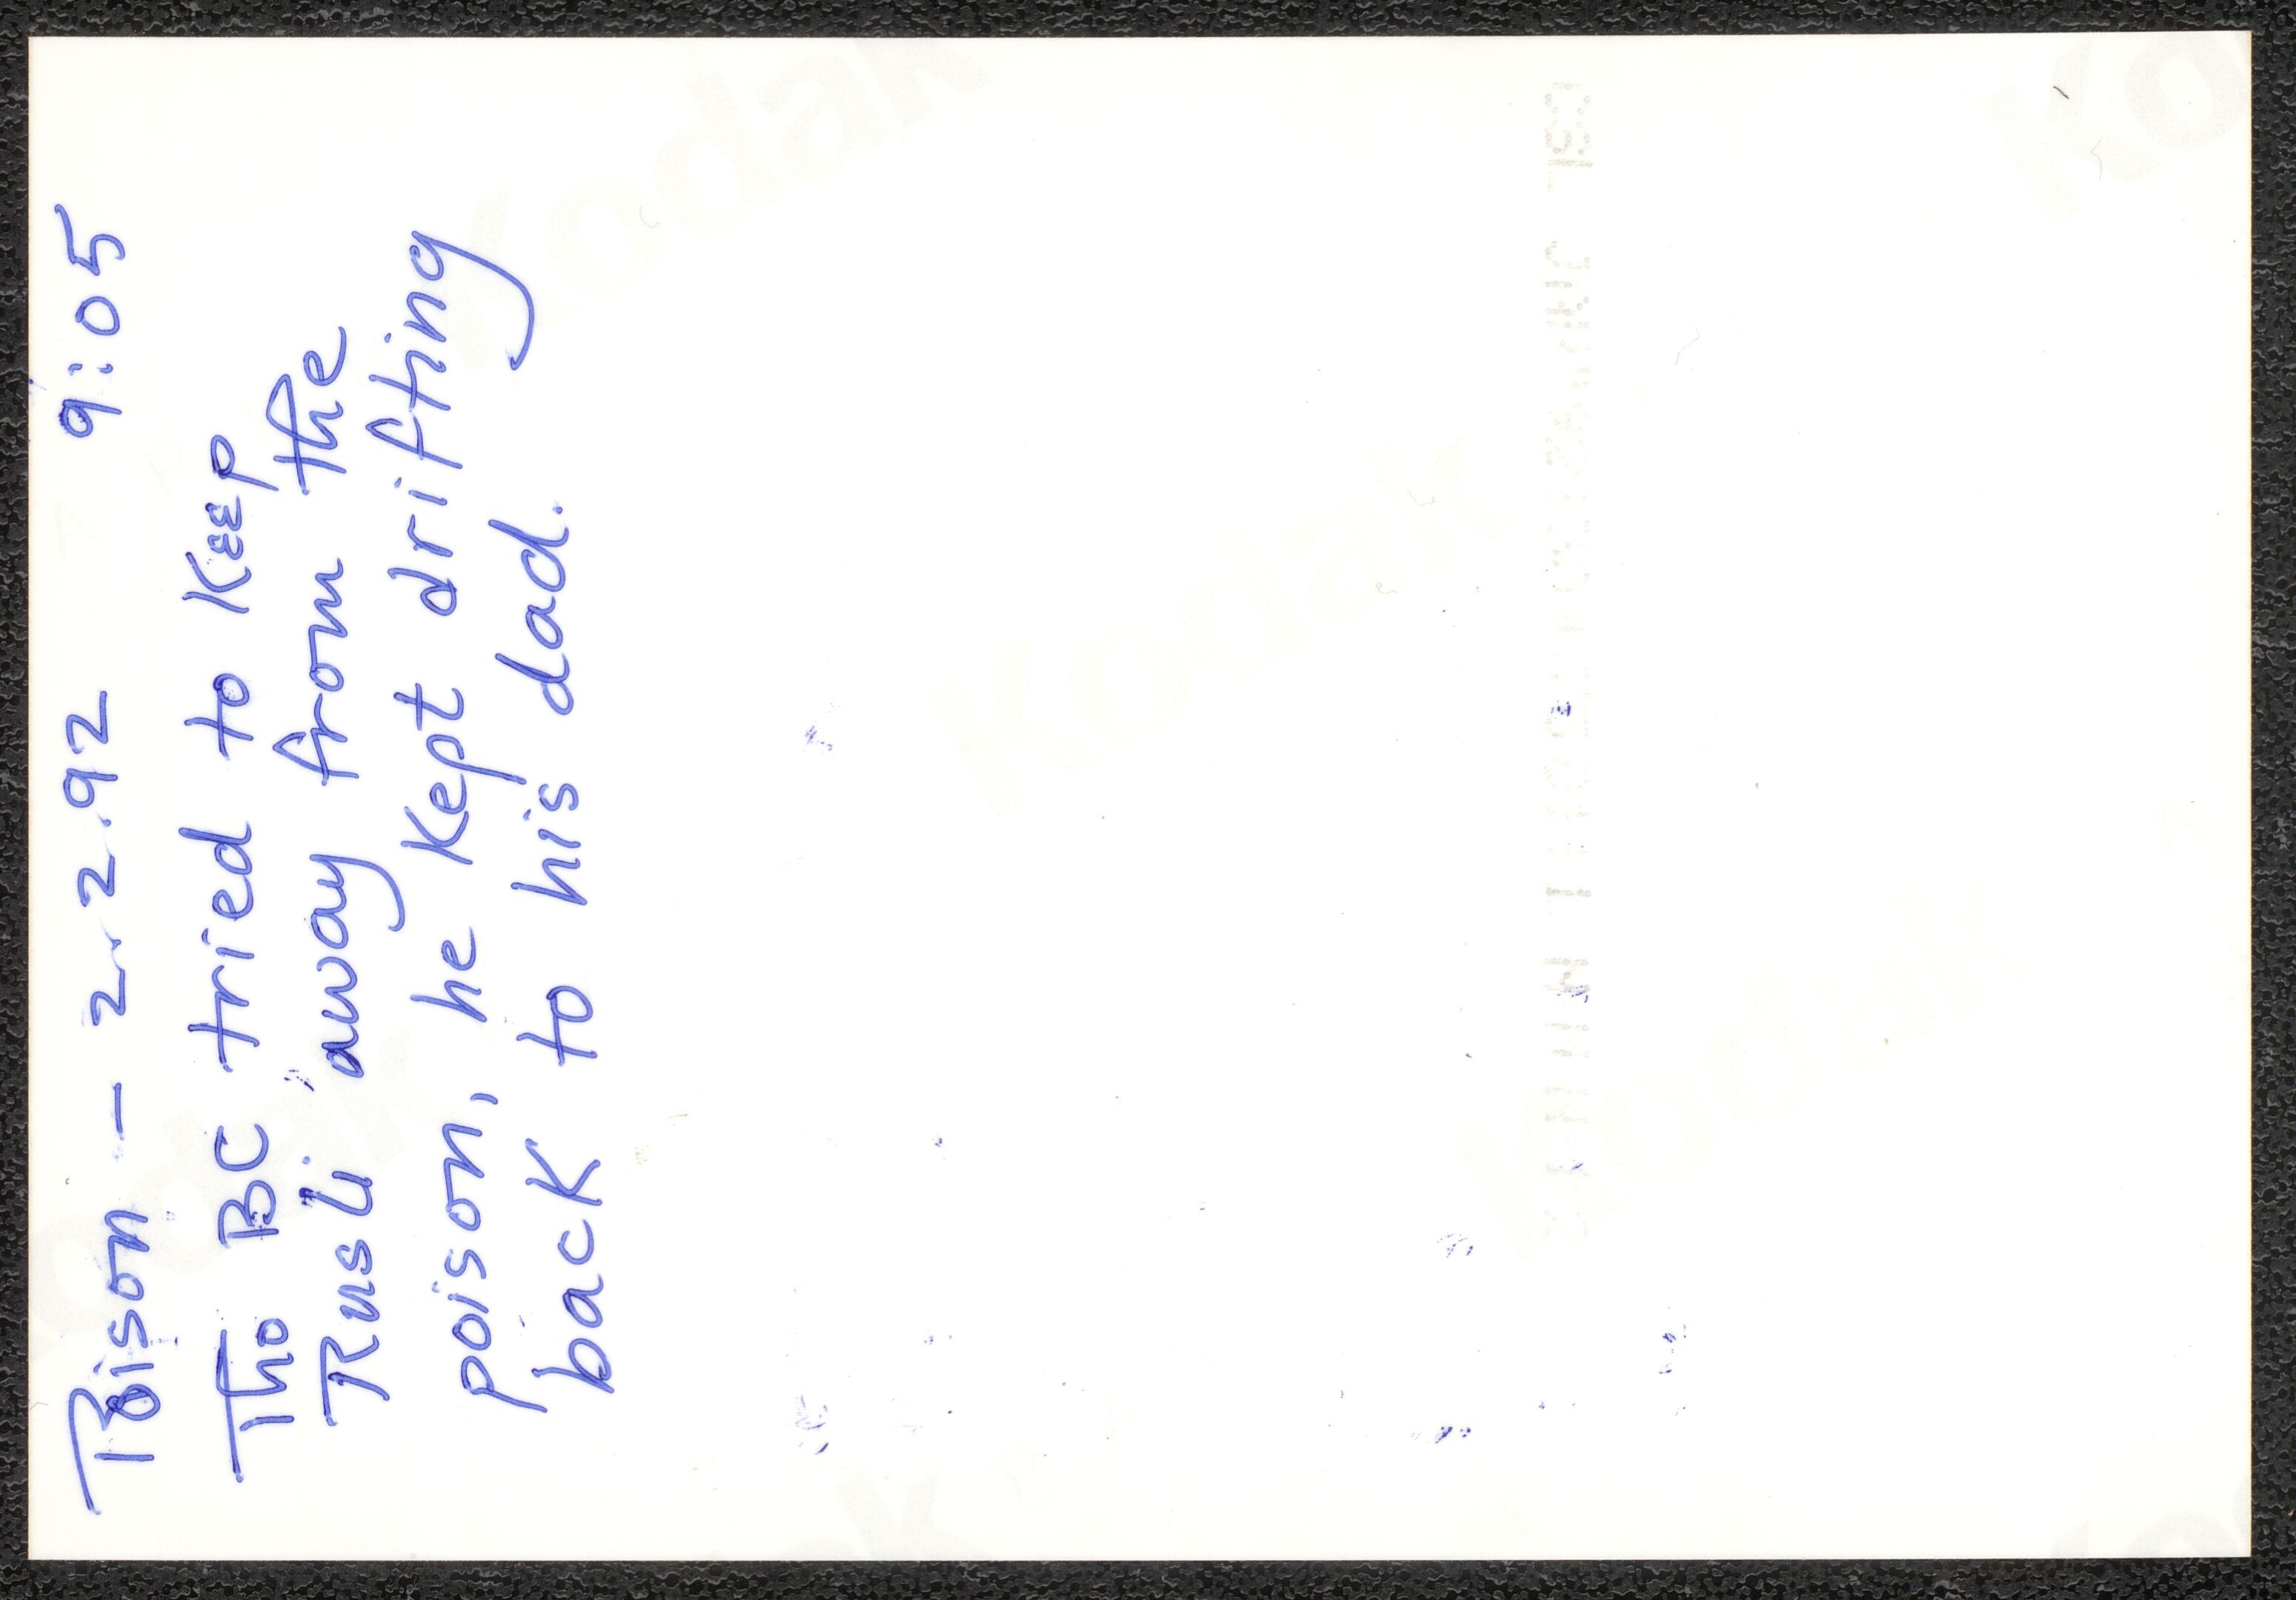 Poison - 2.2.92 9:05
Tho BC tried to keep
Rusli away from the
poison, he kept drifting
back to his dad.
Kodak
Kodak
Kodak